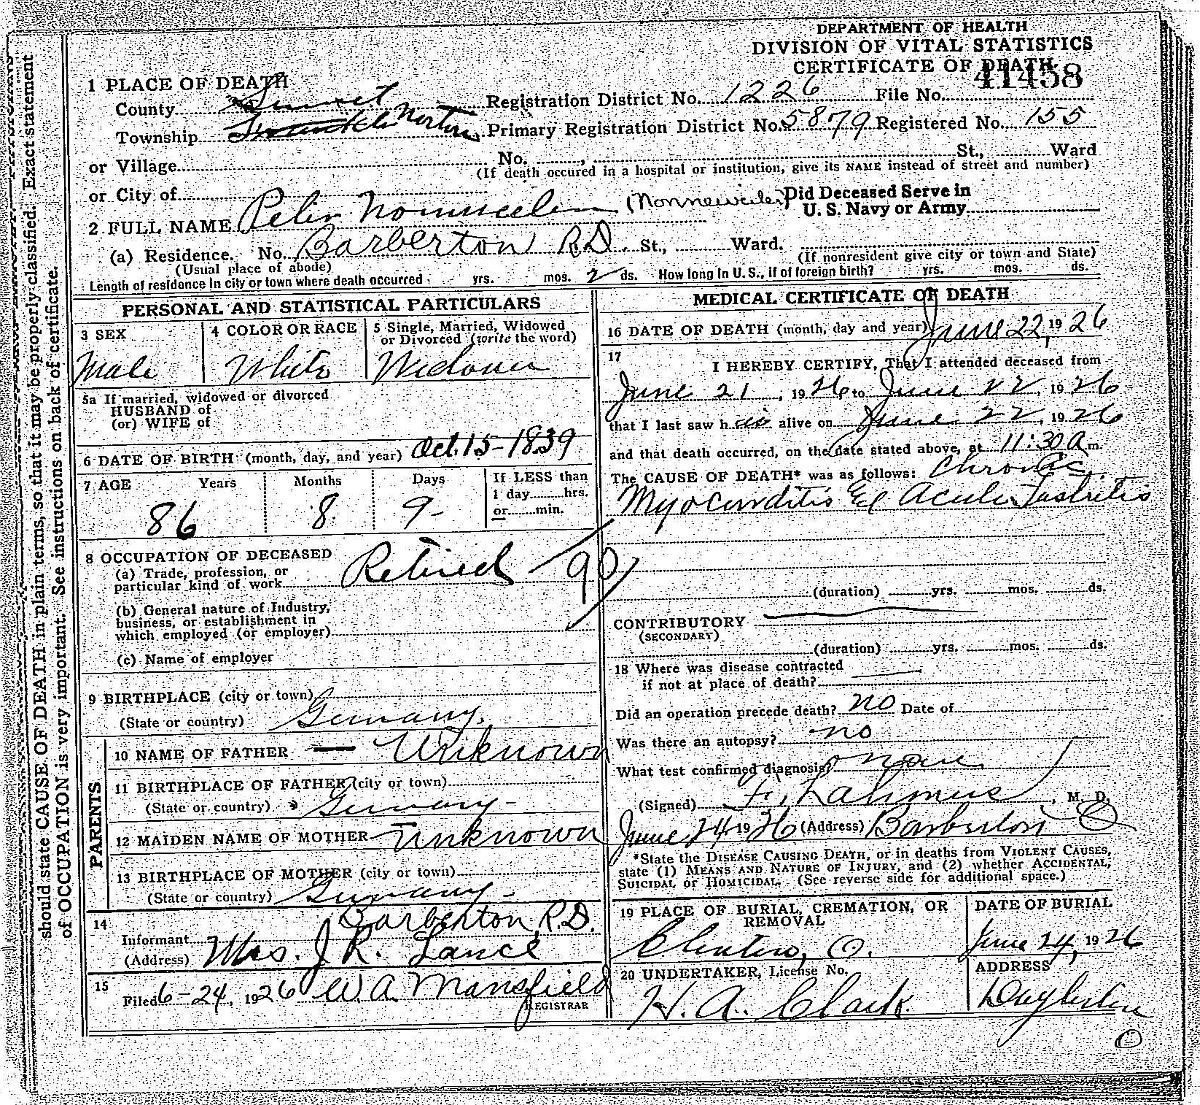 DEPARTMENT OF HEALTH
DIVISION OF VITAL STATISTICS
CERTIFICATE OF DEATH
41458
1 PLACE OF DEATH
County Summit Registration District No. 1226 File No.
Township Norton Primary Registration District No. 5879 Registered No. 155
or Village No. , St., Ward
(If death occured in a hospital or institution, give its NAME instead of street and number)
or City of
2 FULL NAME Peter (Nonneweiler) Did Deceased Serve in U. S. Navy or Army
(a) Residence. No. Barberton RD St., Ward.
(Usual place of abode) (If nonresident give city or town and State)
Length of residence in city or town where death occurred yrs. mos. 2 ds. How long in U. S., if of foreign birth? yrs. mos. ds.
PERSONAL AND STATISTICAL PARTICULARS
3 SEX Male
4 COLOR OR RACE White
5 Single, Married, Widowed or Divorced (write the word) Widower
5a If married, widowed or divorced
HUSBAND of
(or) WIFE of
6 DATE OF BIRTH (month, day, and year) Oct. 15-1839
7 AGE Years Months Days If LESS than
1 day hrs.
or min.
86 8 9-
8 OCCUPATION OF DECEASED
(a) Trade, profession, or particular kind of work Retired 90
(b) General nature of Industry, business, or establishment in which employed (or employer)
(c) Name of employer
9 BIRTHPLACE (city or town)
(State or country) Germany.
PARENTS
10 NAME OF FATHER — Unknown
11 BIRTHPLACE OF FATHER (city or town)
(State or country) Germany-
12 MAIDEN NAME OF MOTHER Unknown
13 BIRTHPLACE OF MOTHER (city or town)
(State or country) Germany-
14 Barberton R.D.
Informant Mrs. J. R. Lance
(Address)
15
Filed 6-24, 1926 W. A. Mansfield
REGISTRAR
MEDICAL CERTIFICATE OF DEATH
16 DATE OF DEATH (month, day and year) June 22, 1926
17
I HEREBY CERTIFY, That I attended deceased from
June 21, 1926 to June 22, 1926
that I last saw h alive on June 22, 1926
and that death occurred, on the date stated above, at 11:30 a m.
The CAUSE OF DEATH* was as follows: Chronic
Myocarditis Acute Gastritis
(duration) yrs. mos. ds.
CONTRIBUTORY
(SECONDARY)
(duration) yrs. mos. ds.
18 Where was disease contracted
if not at place of death?
Did an operation precede death? no Date of
Was there an autopsy? no
What test confirmed diagnosis? none
(Signed) , M. D.
June 24 1926 (Address) Barberton O
*State the DISEASE CAUSING DEATH, or in deaths from VIOLENT CAUSES,
state (1) MEANS AND NATURE OF INJURY, and (2) whether ACCIDENTAL,
SUICIDAL or HOMICIDAL. (See reverse side for additional space.)
19 PLACE OF BURIAL, CREMATION, OR REMOVAL
Clinton, O.
DATE OF BURIAL
June 24, 1926
20 UNDERTAKER, License No.
H. A. Clark.
ADDRESS
Doylestown
O
should state CAUSE OF DEATH in plain terms, so that it may be properly classified. Exact statement
of OCCUPATION is very important. See instructions on back of certificate.